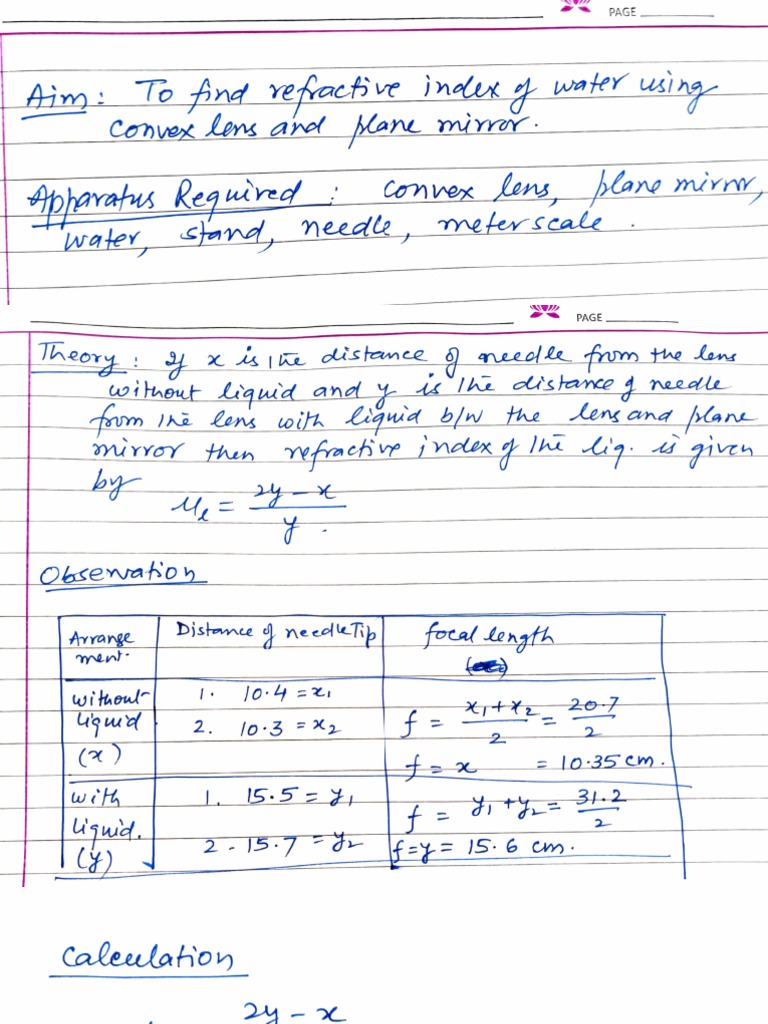 PAGE
Aim: To find refractive index of water using
convex lens and plane mirror.
Apparatus Required: convex lens, plane mirror,
water, stand, needle, meter scale.
PAGE
Theory: If x is the distance of needle from the lens
without liquid and y is the distance of needle
from the lens with liquid b/w the lens and plane
mirror then refractive index of the liq. is given
by μl = (2y - x)/y.
Observation
Arrange
ment.
Distance of needle Tip
focal length
without
liquid
(x)
1. 10.4 = x₁
2. 10.3 = x₂
f = (x₁ + x₂)/2 = 20.7/2
f = x = 10.35 cm.
with
liquid.
(y)
1. 15.5 = y₁
2 - 15.7 = y₂
f = y₁ + y₂ = 31.2/2
f = y = 15.6 cm.
Calculation
2y - x